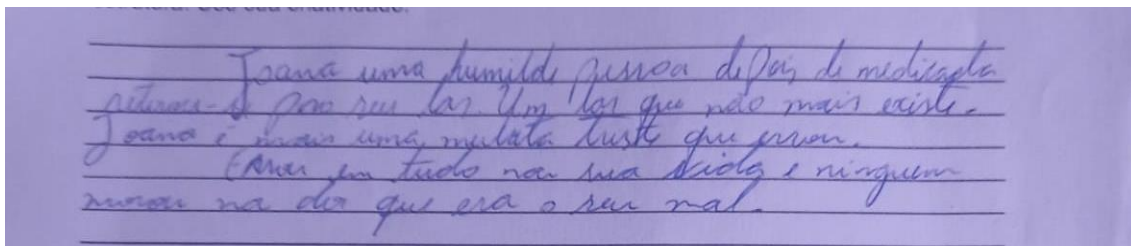 Use sua criatividade.
Joana uma humilde pessoa depois de medicada
retirou-se pro seu lar. Um lar que não mais existe.
Joana é mais uma mulata triste que errou.
Errou em tudo na sua vida e ninguem
morou na dor que era o seu mal.